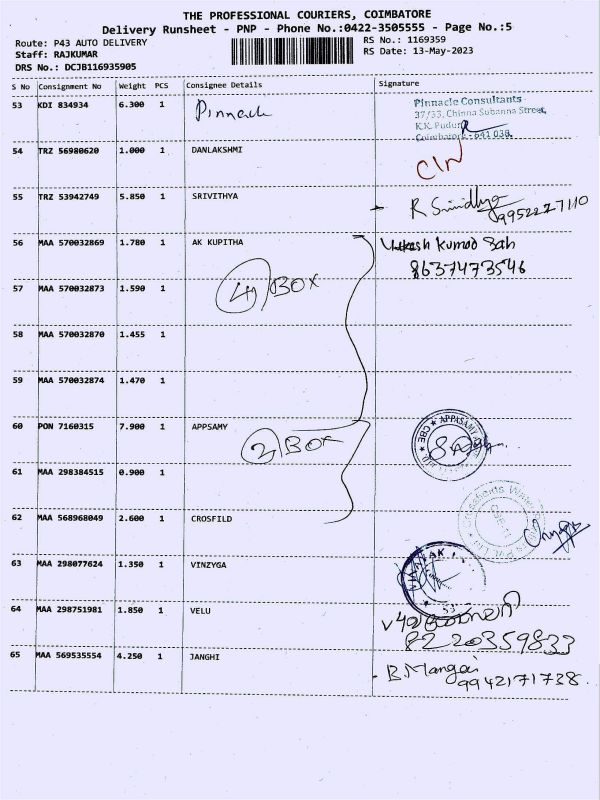 THE PROFESSIONAL COURIERS, COIMBATORE
Delivery Runsheet - PNP - Phone No.:0422-3505555 - Page No.:5
Route: P43 AUTO DELIVERY
Staff: RAJKUMAR
DRS No.: DCJB116935905
RS No.: 1169359
RS Date: 13-May-2023
S No Consignment No Weight PCS Consignee Details Signature
53 KDI 834934 6.300 1 Pinnacle
Pinnacle Consultants
37/33, Chinna Subanna Street,
K.K. Pudur,
Coimbatore - 641 038.
54 TRZ 56980620 1.000 1 DANLAKSHMI
55 TRZ 53942749 5.850 1 SRIVITHYA
9952227110
56 MAA 570032869 1.780 1 AK KUPITHA
Kumar Sah
8637473546
57 MAA 570032873 1.590 1
4 BOX
58 MAA 570032870 1.455 1
59 MAA 570032874 1.470 1
60 PON 7160315 7.900 1 APPSAMY
2 BOX
APPASAMY
CBE
61 MAA 298384515 0.900 1
62 MAA 568968049 2.600 1 CROSFILD
63 MAA 298077624 1.350 1 VINZYGA
64 MAA 298751981 1.850 1 VELU
8220359833
65 MAA 569535554 4.250 1 JANGHI
B. Mangai
9942171738